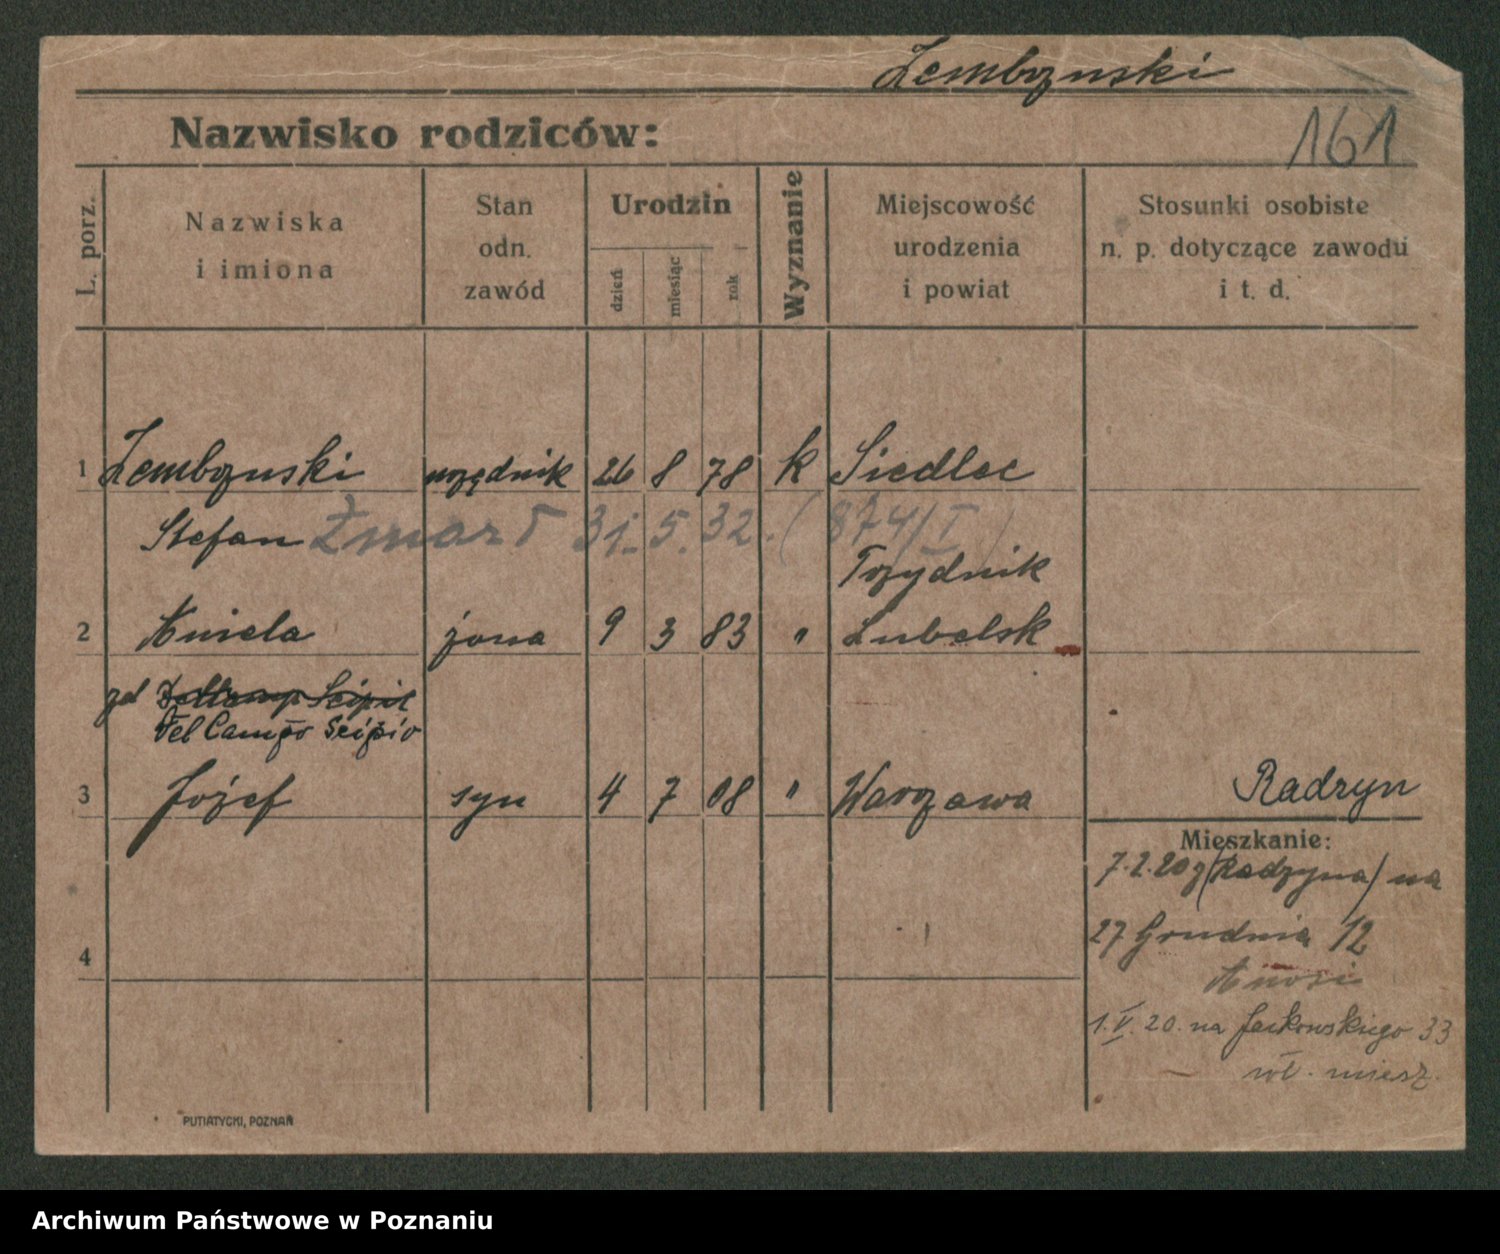 Zembrzuski
Nazwisko rodziców:
161
L. porz.
Nazwiska
i imiona
Stan
odn.
zawód
Urodzin
dzień
miesiąc
rok
Wyznanie
Miejscowość
urodzenia
i powiat
Stosunki osobiste
n. p. dotyczące zawodu
i t. d.
1 Zembrzuski urzędnik 26 8 78 k Siedlec
Stefan Zmarł 31. 5. 32. (874/I)
Trzydnik
2 Aniela żona 9 3 83 " Lubelsk
zd
Del Campo Scipio
3 Józef syn 4 7 08 " Warszawa
Radzyn
Mieszkanie:
7.2.20 z (Radzyna) na
27 Grudnia 12
4
1.V.20. na Jackowskiego 33
wł. miesz.
PUTIATYCKI, POZNAŃ
Archiwum Państwowe w Poznaniu